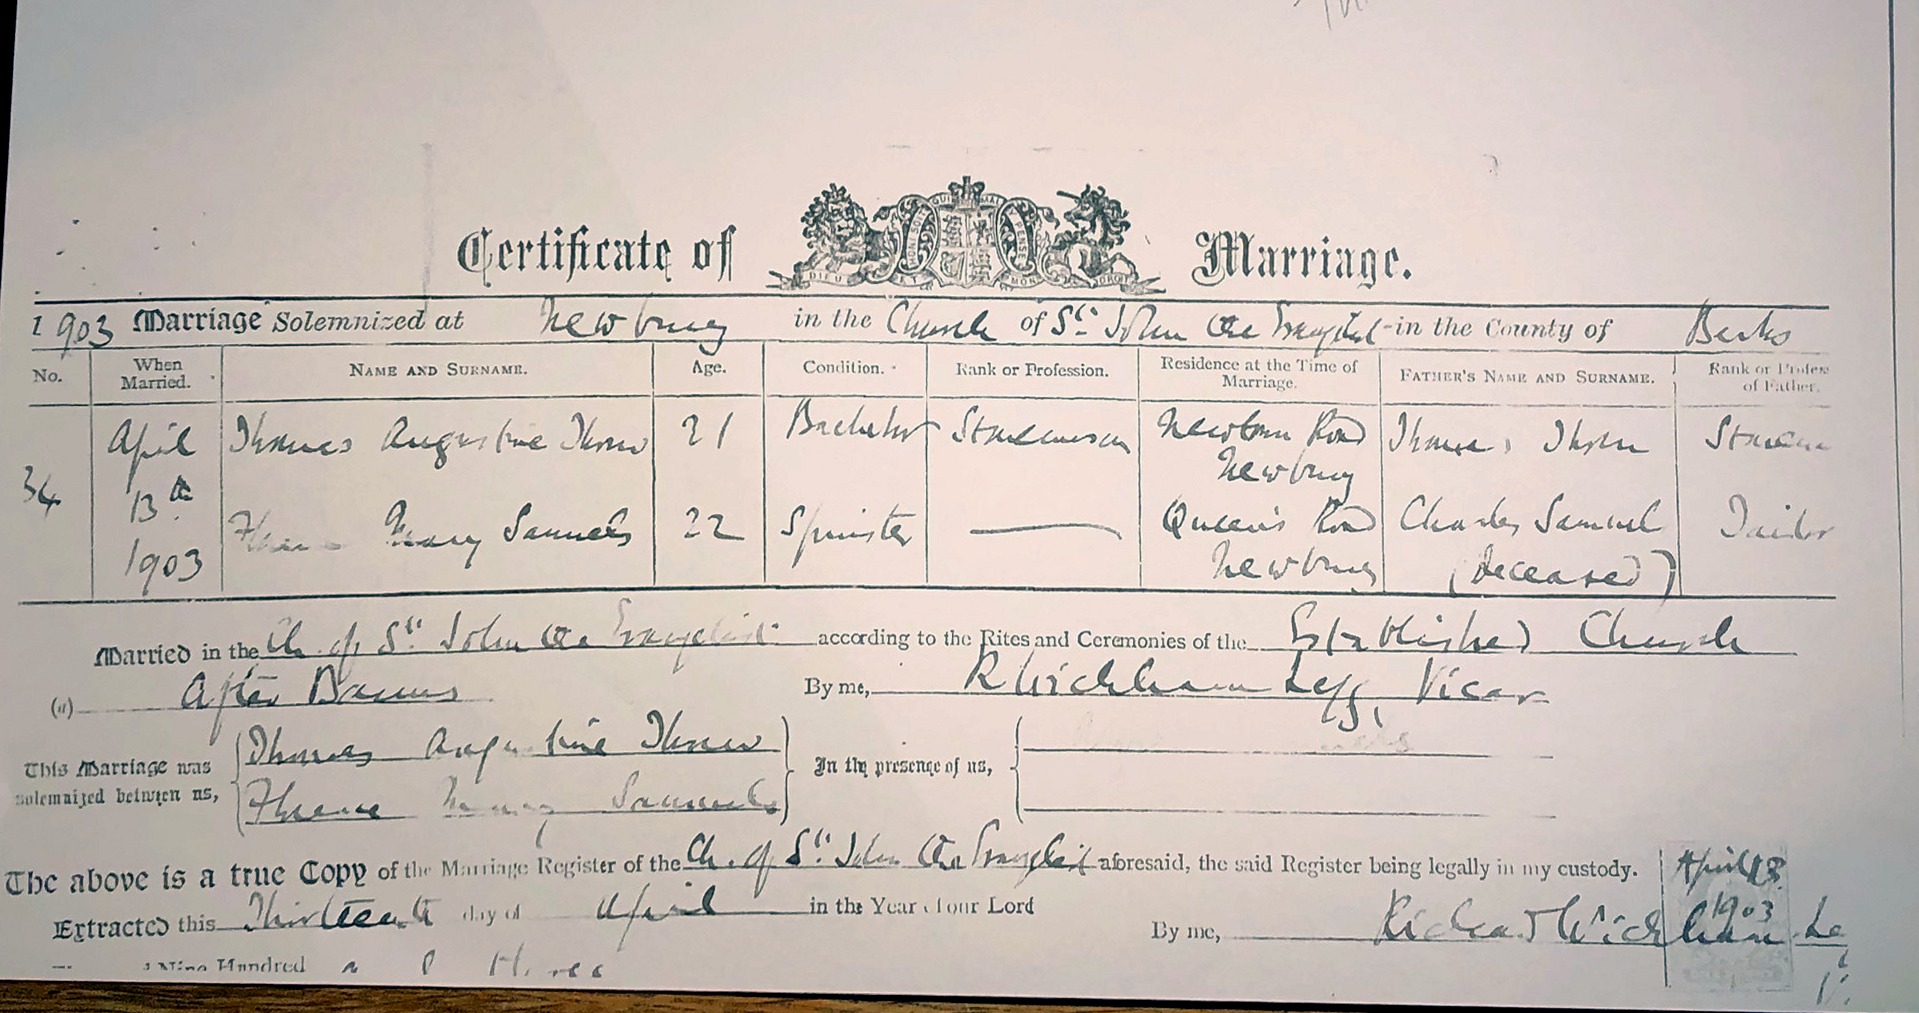 Certificate of Marriage.
DIEU ET MON DROIT
1903 Marriage Solemnized at Newbury in the Church of St. John the Evangelist in the County of Berks
No. When Married. NAME AND SURNAME. Age. Condition. Rank or Profession. Residence at the Time of Marriage. FATHER'S NAME AND SURNAME. Rank or Profess of Father.
34 April 13th 1903
Thomas Augustine 21 Bachelor Stoneman Newtown Road Newbury Thomas
Mary Samuels 22 Spinster Queen's Road Newbury Charles Samuel (deceased) Tailor
Married in the Ch. of St. John the Evangelist according to the Rites and Ceremonies of the Established Church
(a) After Banns By me, R Wickham Legg, Vicar
This Marriage was solemnized between us,
Thomas Augustine
Mary Samuels
In the presence of us,
The above is a true Copy of the Marriage Register of the Ch. of St. John the Evangelist aforesaid, the said Register being legally in my custody.
April 13 1903
Extracted this Thirteenth day of April in the Year our Lord
By me, Richard Wickham Le
Nine Hundred